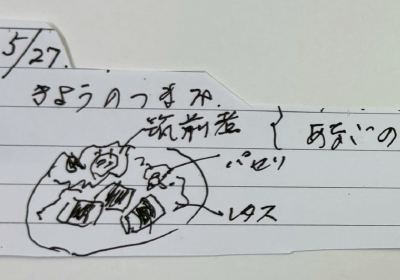 5/27.
きょうのつまみ.
筑前煮 { あなごの
パセリ
レタス